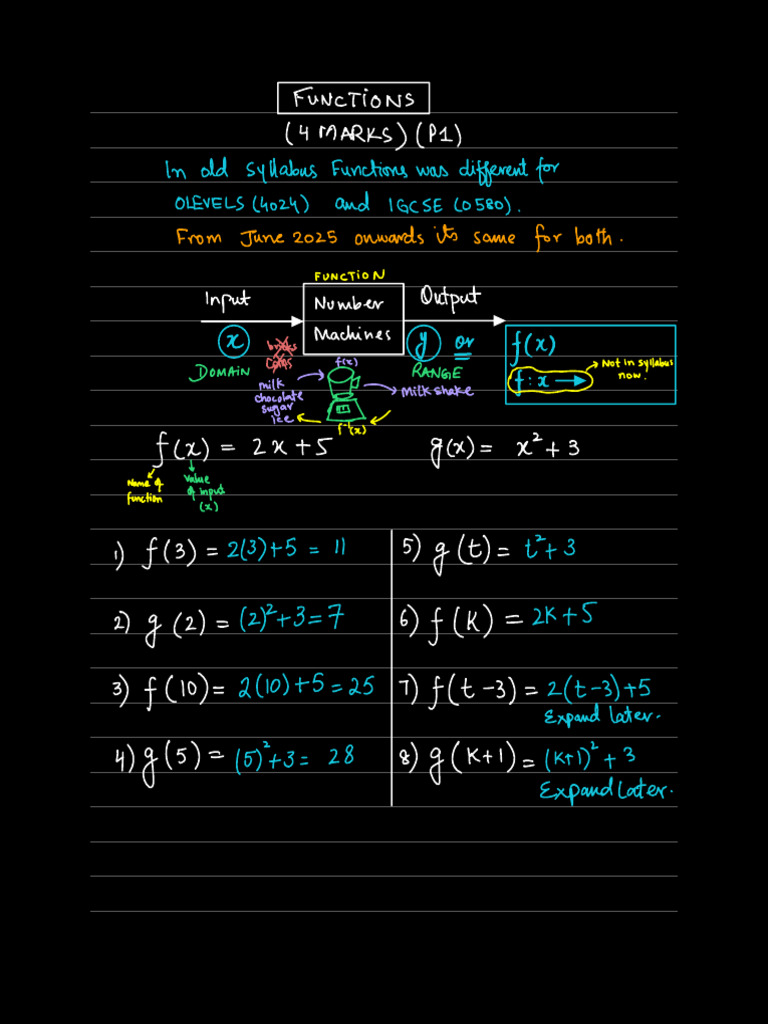 FUNCTIONS
(4 MARKS) (P1)
In old syllabus Functions was different for
OLEVELS (4024) and IGCSE (0580).
From June 2025 onwards its same for both.
FUNCTION
Input
Number
Machines
Output
x
y or
f(x)
f : x →
Not in syllabus
now.
DOMAIN
RANGE
bricks
f(x)
milk
chocolate
sugar
ice
milkshake
f⁻¹(x)
f(x) = 2x+5
g(x) = x²+3
Name of
function
Value
of input
(x)
1) f(3) = 2(3)+5 = 11
2) g(2) = (2)²+3 = 7
3) f(10) = 2(10)+5 = 25
4) g(5) = (5)²+3 = 28
5) g(t) = t²+3
6) f(k) = 2k+5
7) f(t-3) = 2(t-3)+5
Expand later.
8) g(k+1) = (k+1)²+3
Expand Later.